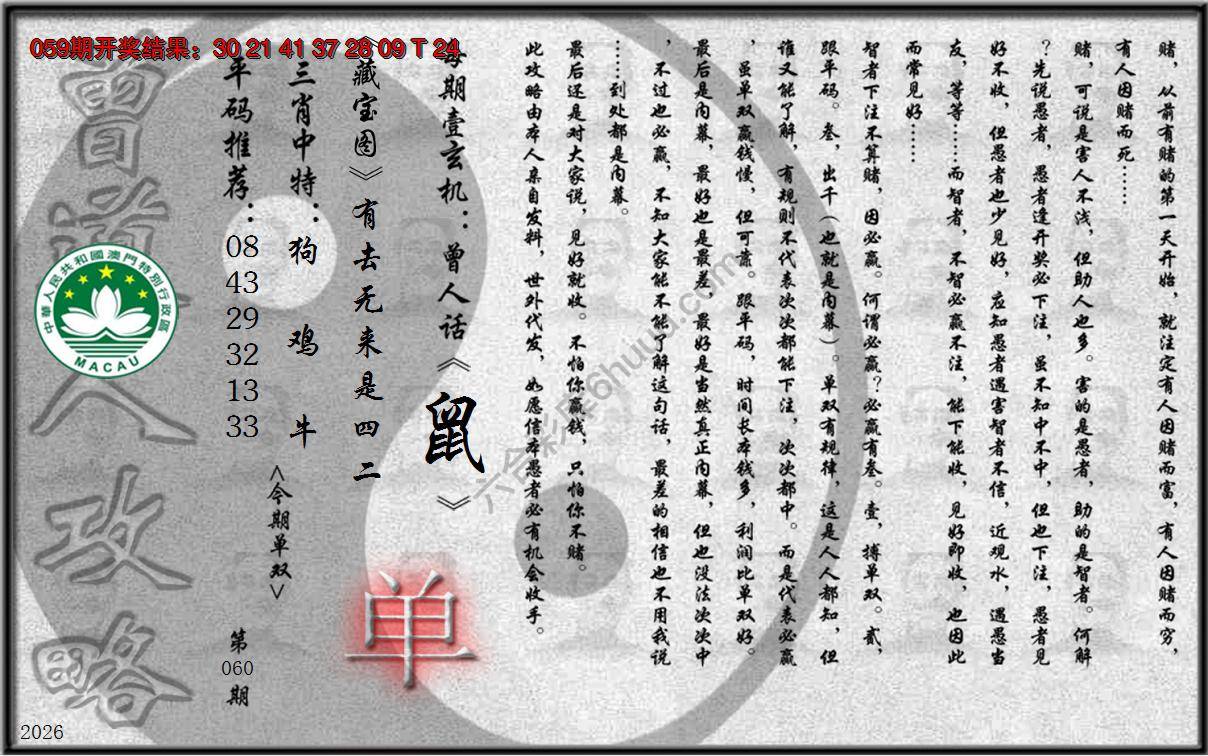 059期开奖结果：30 21 41 37 28 09 T 24
赌，从前有赌的第一天开始，就注定有人因赌而富，有人因赌而穷，
有人因赌而死……
赌，可说是害人不浅，但助人也多。害的是愚者，助的是智者。何解
？先说愚者，愚者逢开奖必下注，虽不知中不中，但也下注，愚者见
好不收，但愚者也少见好，应知愚者遇害智者不信，近观水，遇愚当
友，等等……而智者，不智必赢不注，能下能收，见好即收，也因此
而常见好……
智者下注不算赌，因必赢。何谓必赢？必赢有叁。壹，搏单双。贰，
跟平码。叁，出千（也就是内幕）。单双有规律，这是人人都知，但
谁又能了解，有规则不代表次次都能下注，次次都中。而是代表必赢
，虽单双赢钱慢，但可靠。跟平码，时间长本钱多，利润比单双好。
最后是内幕，最好也是最差，最好是当然真正内幕，但也没法次次中
，不过也必赢，不知大家能不能了解这句话，最差的相信也不用我说
……到处都是内幕。
最后还是对大家说，见好就收。不怕你赢钱，只怕你不赌。
此攻略由本人亲自发料，世外代发，如愿信本愚者必有机会收手。
每期壹玄机：曾人话《鼠》
《藏宝图》有去无来是四二
单
三肖中特：狗 鸡 牛
<今期单双>
平码推荐：08 43 29 32 13 33
第060期
曾道人攻略
中華人民共和國澳門特別行政區
MACAU
六合彩库6huuu.com
2026